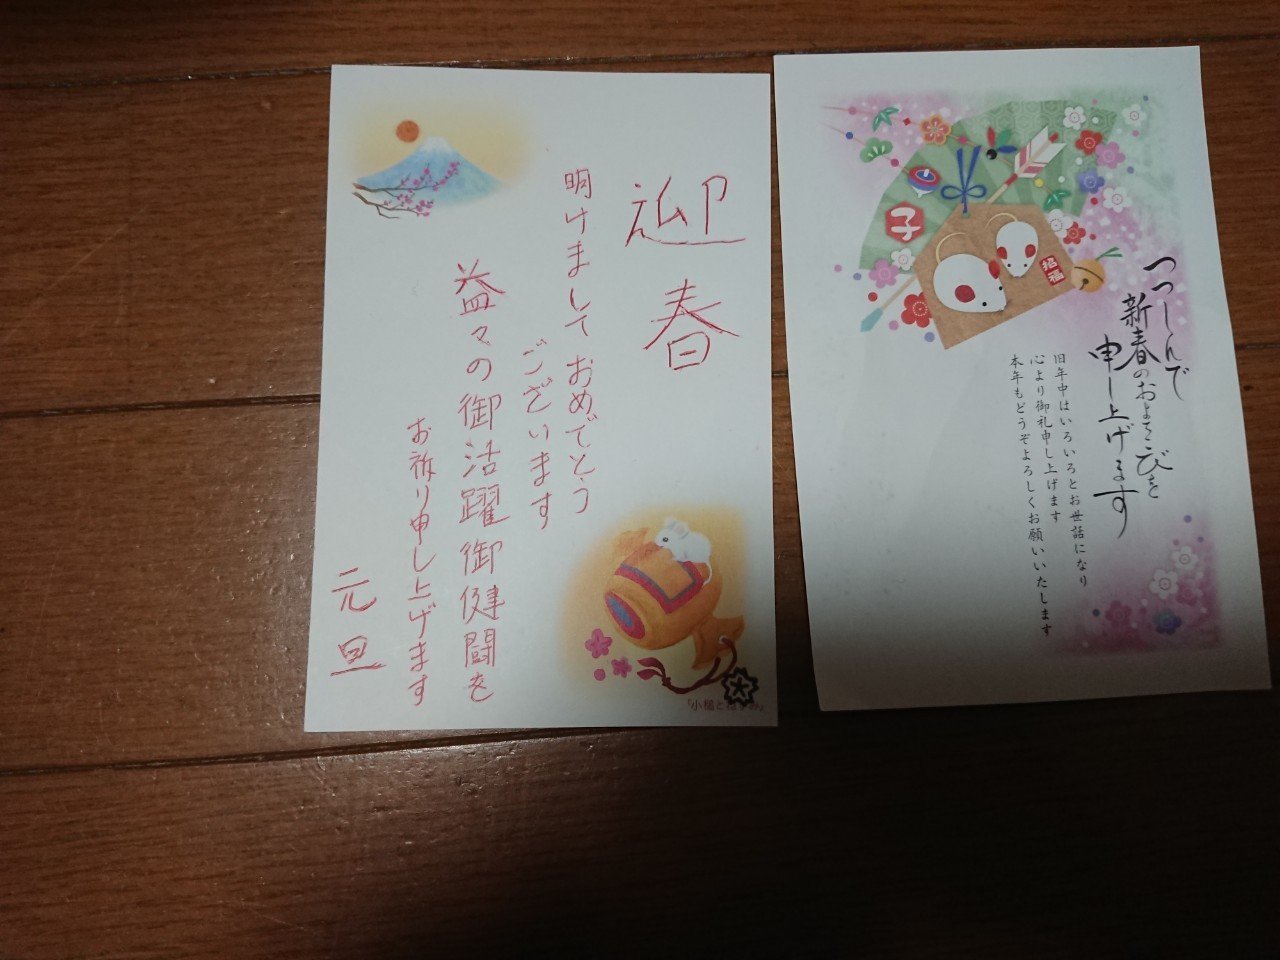 迎春
明けましておめでとう
ございます
益々の御活躍御健闘を
お祈り申し上げます
元旦
「小槌とねずみ」
子
招福
つつしんで
新春のおよろこびを
申し上げます
旧年中はいろいろとお世話になり
心より御礼申し上げます
本年もどうぞよろしくお願いいたします